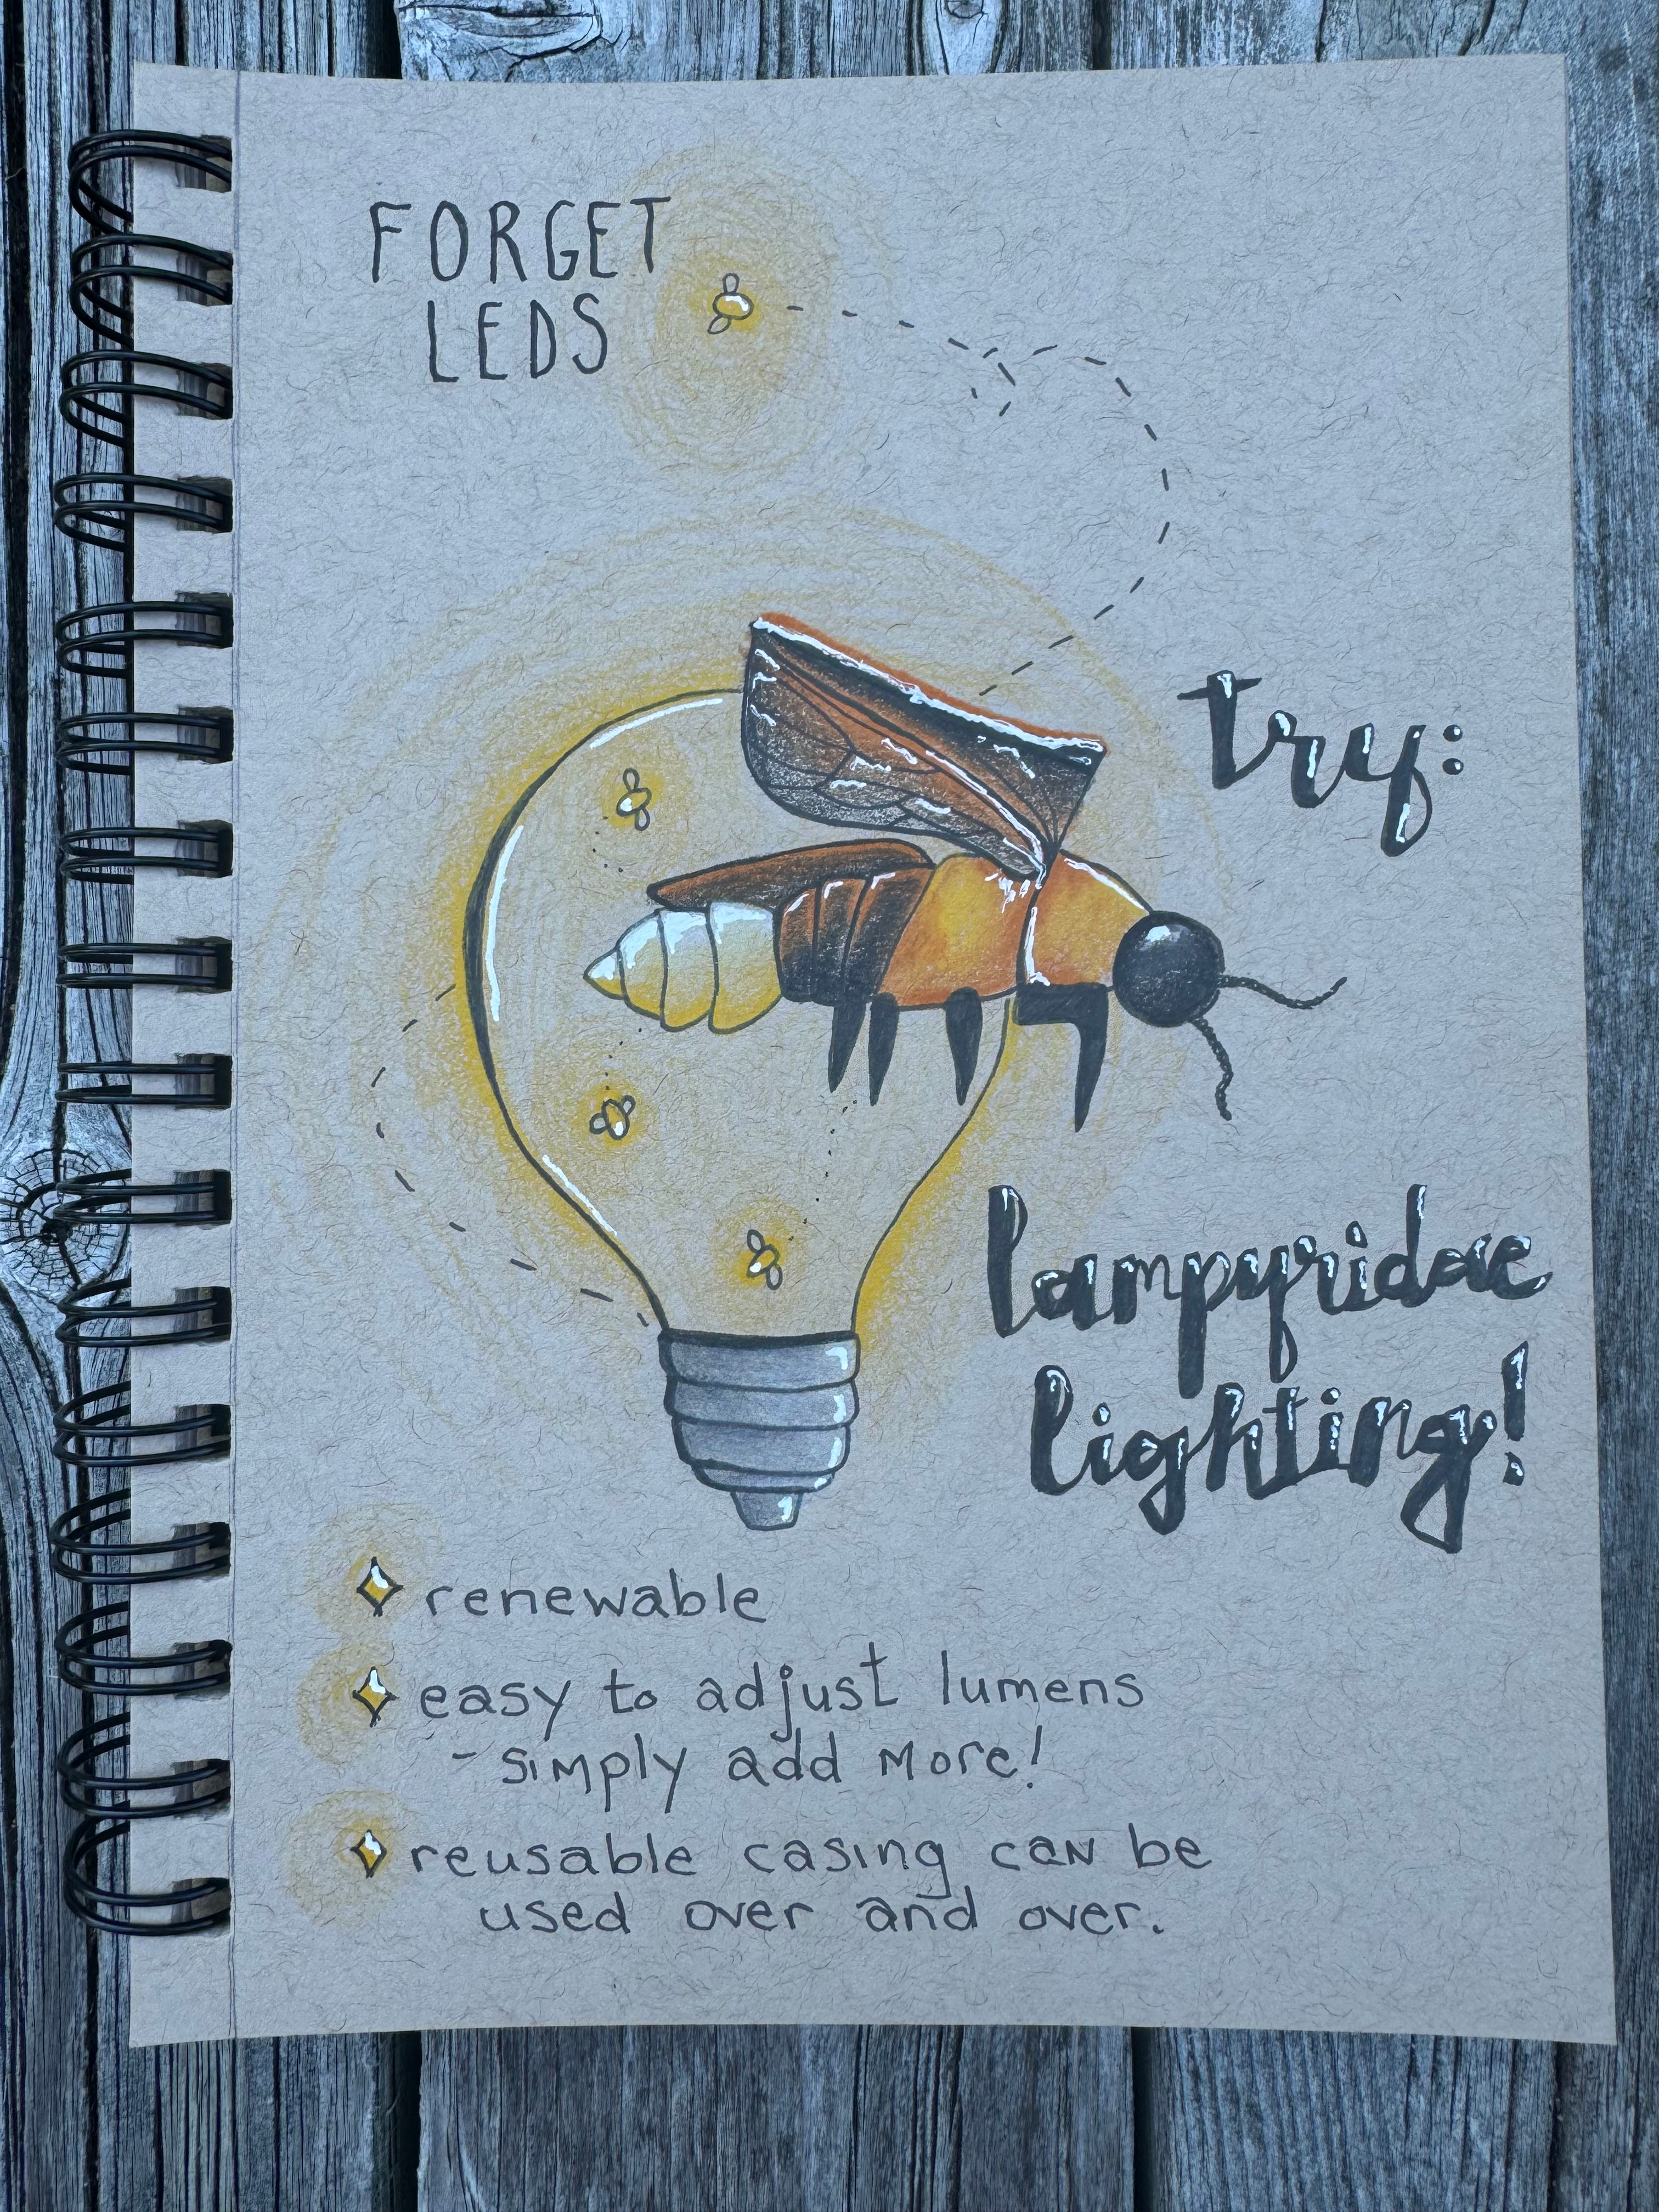 FORGET
LEDS
try:
lampyridae
lighting!
renewable
easy to adjust lumens
- simply add more!
reusable casing can be
used over and over.